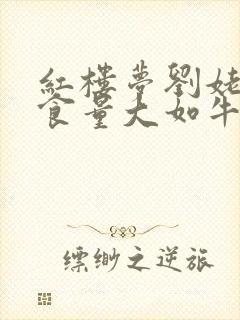 紅樓夢劉姥
食量大如牛
缥缈之逆旅